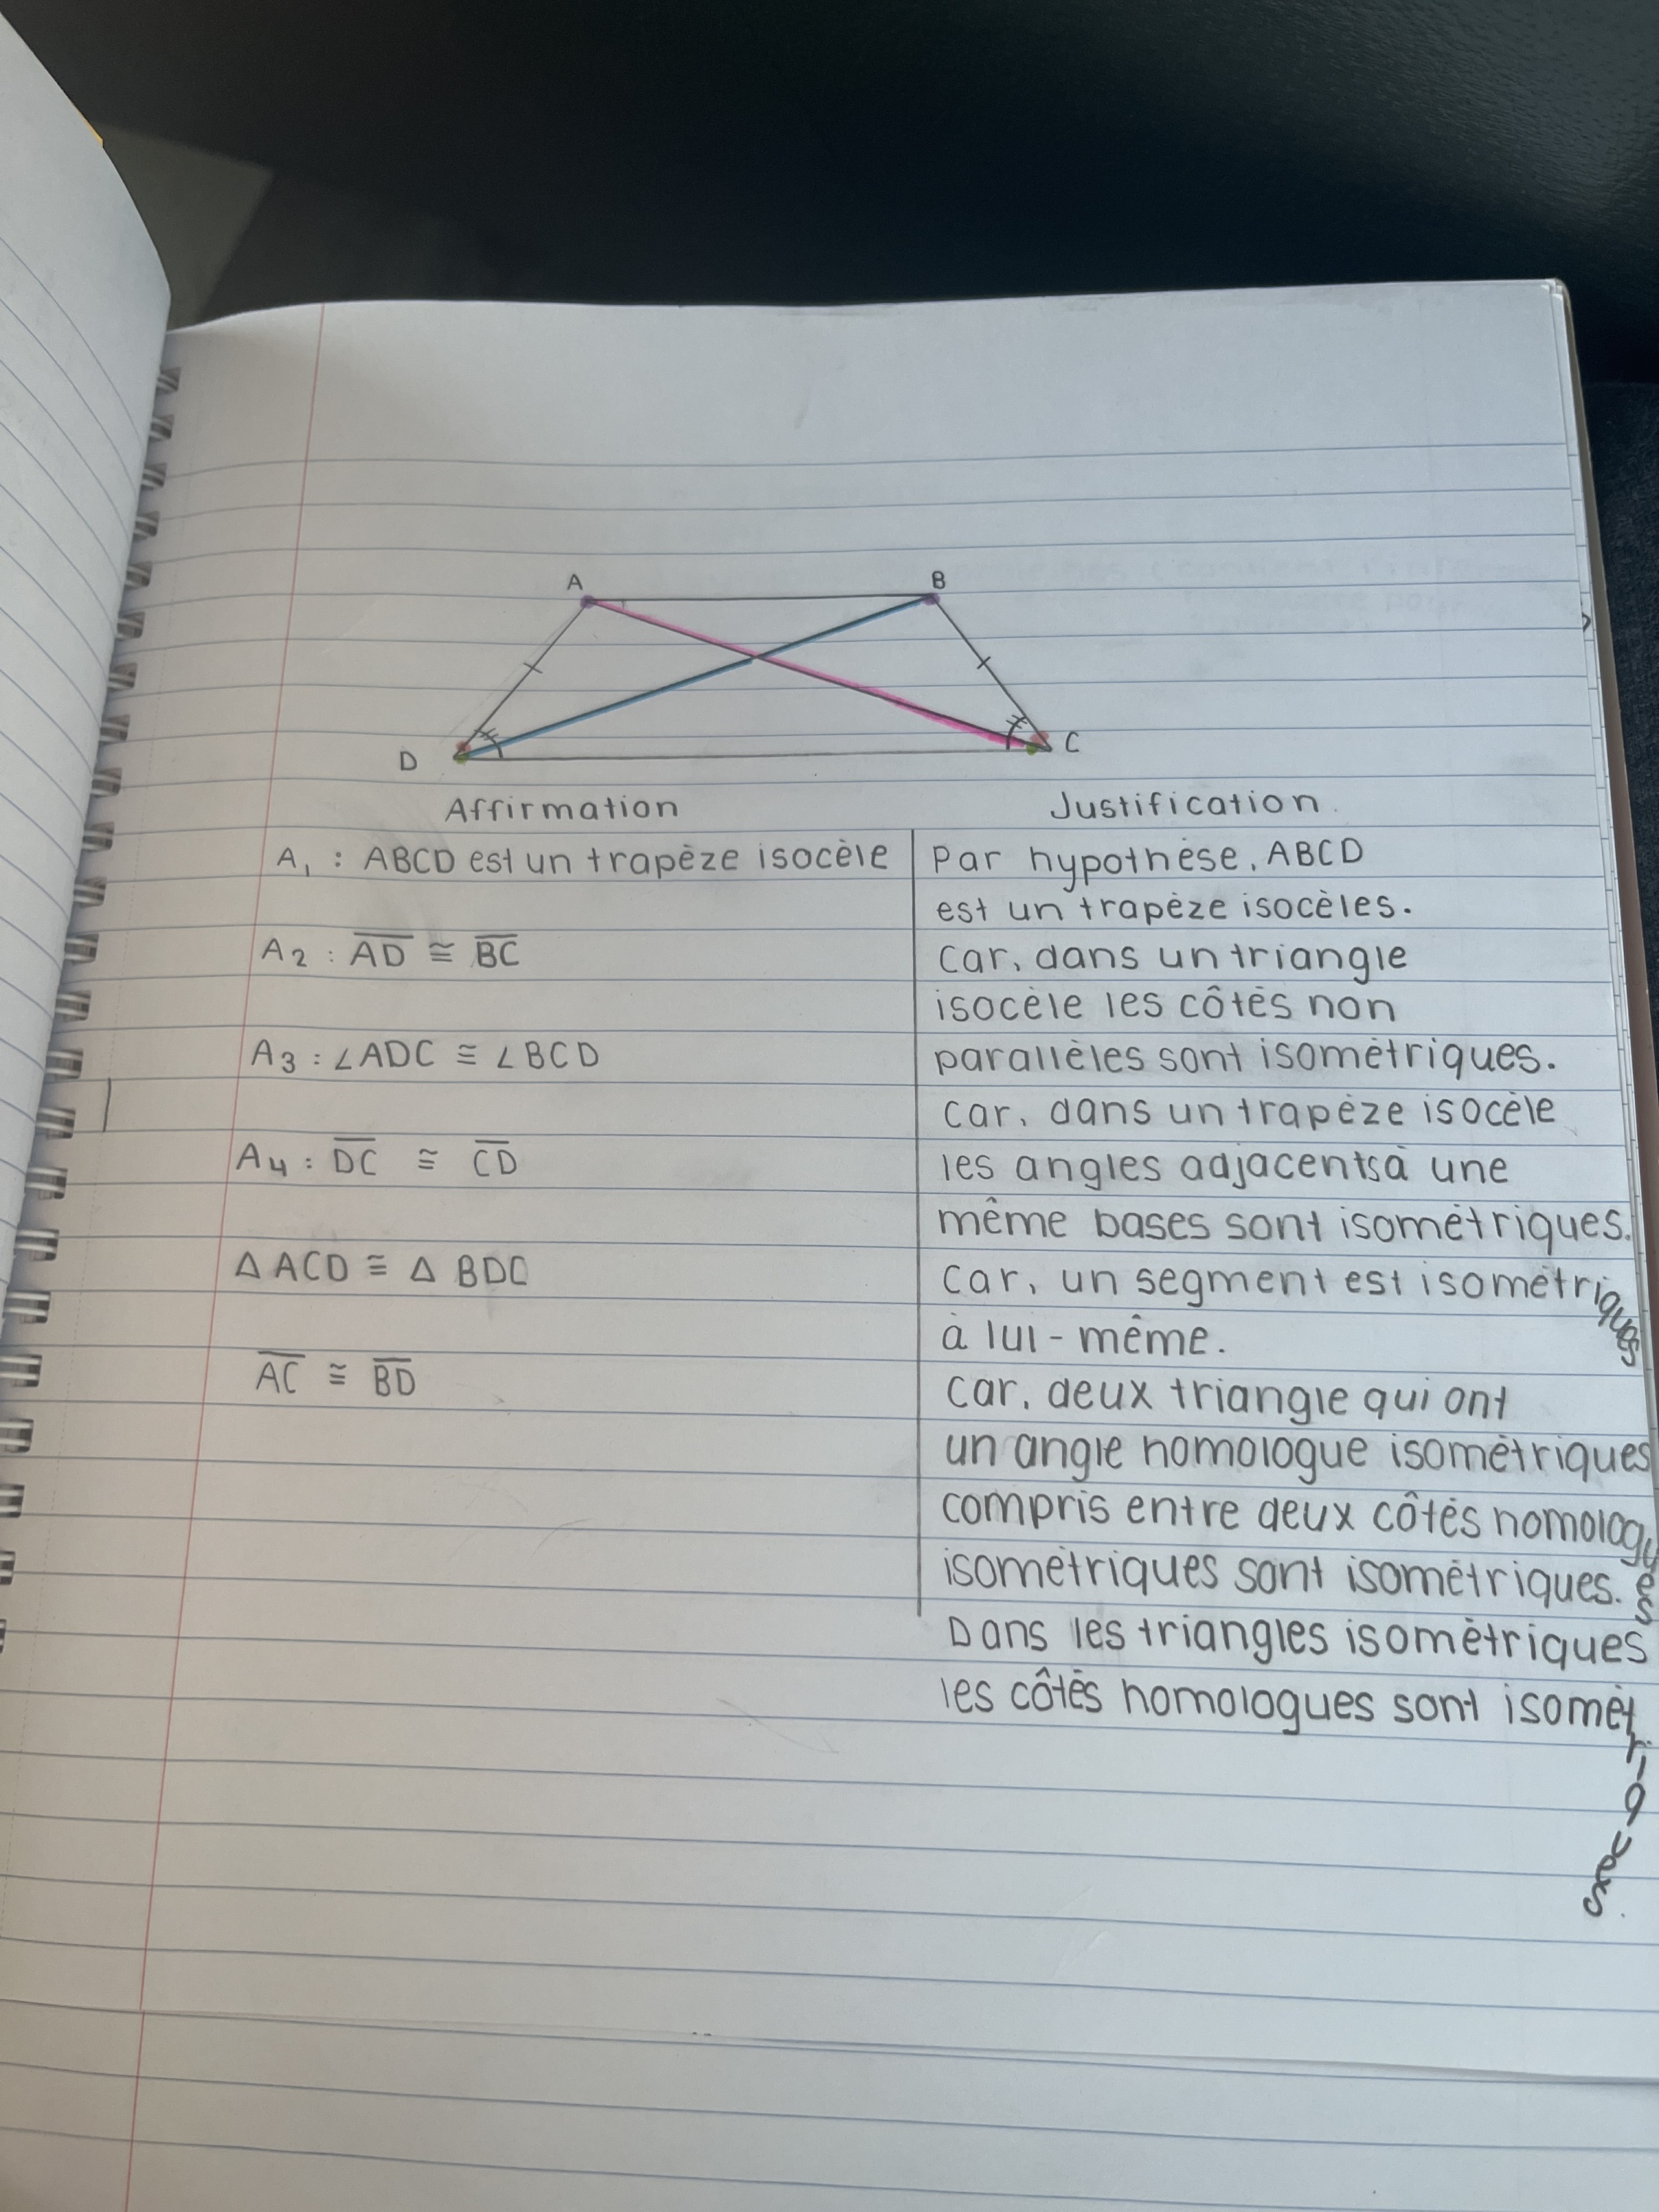 A B
D C
Affirmation Justification
A₁ : ABCD est un trapèze isocèle Par hypothèse, ABCD
est un trapèze isocèles.
A₂ : AD ≅ BC Car, dans un triangle
isocèle les côtés non
A₃ : ∠ADC ≅ ∠BCD parallèles sont isométriques.
Car, dans un trapèze isocèle
A₄ : DC ≅ CD les angles adjacentsà une
même bases sont isométriques.
Δ ACD ≅ Δ BDC Car, un segment est isométriques
à lui-même.
AC ≅ BD Car, deux triangle qui ont
un angle homologue isométriques
compris entre deux côtés homologues
isométriques sont isométriques.
Dans les triangles isométriques
les côtés homologues sont isométriques.